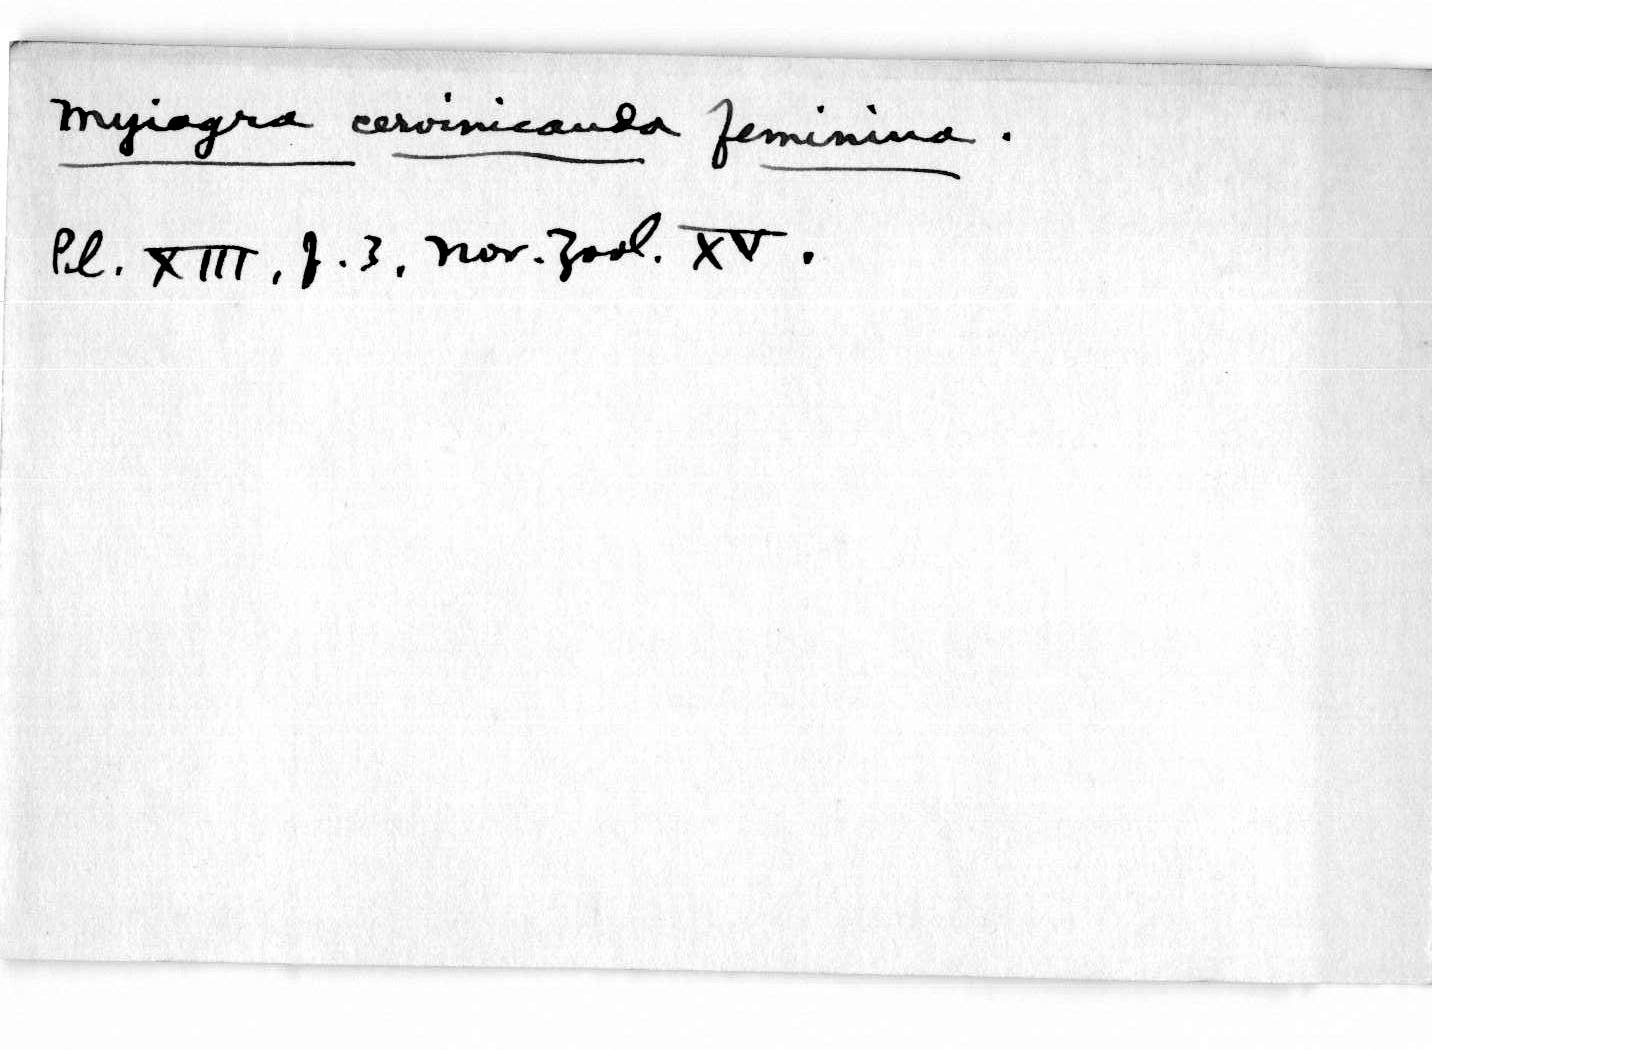 Myiagra cervinicauda feminina.
Pl. XIII, f. 3, Nov. Zool. XV.